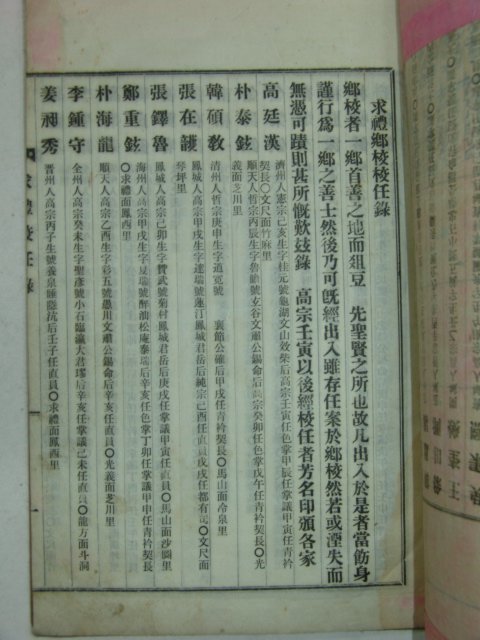 求禮鄕校校任錄
鄕校者一鄕首善之地而俎豆 先聖賢之所也故凡出入於是者當飭身
謹行爲一鄕之善士然後乃可旣經出入雖存任案於鄕校然若或湮失而
無憑可蹟則甚所慨歎玆錄 高宗壬寅以後經校任者芳名印頒各家
高廷漢 濟州人憲宗己亥生字桂元號龜湖文山效柴后高宗壬寅任色掌甲辰任掌議甲寅任靑衿
契長〇文尺面竹麻里
朴泰鉉 順天人哲宗丙辰生字魯瞻號玄谷文肅公錫命后高宗癸卯任色掌戊午任靑衿契長〇光
義面芝川里
韓碩敎 淸州人哲宗庚申生字道寬號 襄節公確后甲戌任靑衿契長〇馬山面冷泉里
張在護 鳳城人高宗甲戌生字達瑞號蓮汀鳳城君岳后純宗己酉任直員戊戌任都有司〇文尺面
琴坪里
張鐸魯 鳳城人高宗己卯生字贊武號菊村鳳城君岳后庚戌任掌議甲寅任直員〇馬山面沙圖里
鄭重鉉 海州人高宗甲戌生字見瑞號醉油松菴泰瑞后辛亥任色掌丁卯任掌議甲申任靑衿契長
〇求禮面鳳西里
朴海龍 順天人高宗乙酉生字彩五號墨川文肅公錫命后辛亥任掌議任直員〇光義面芝川里
李鍾守 全州人高宗癸未生字聖彥號小石臨瀛大君璆后辛亥任掌議己未任直員〇龍方面斗洞
姜昶秀 晋州人高宗丙子生字 號養泉睡隱沆后壬子任直員〇求禮面鳳西里